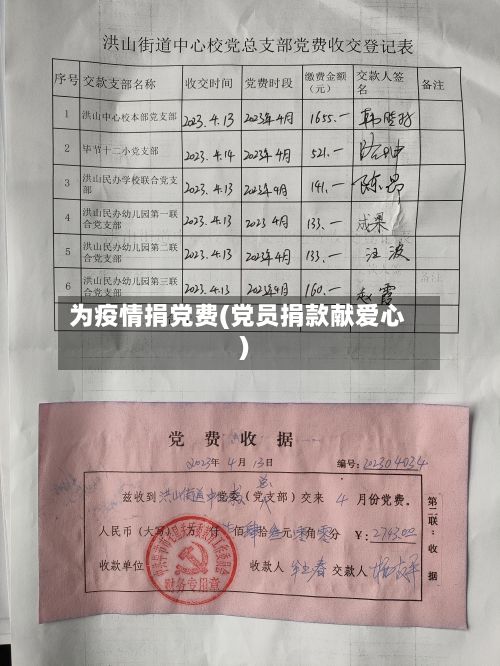 洪山街道中心校党总支部党费收交登记表
序号 交款支部名称 收交时间 党费时段 缴费金额（元） 交款人签名 备注
1 洪山中心校本部党支部 2023.4.13 2023年4月 1655.—
2 毕节十二小党支部 2023.4.14 2023年4月 521.—
3 洪山民办学校联合党支部 2023.4.13 2023年4月 141.— 陈昂
4 洪山民办幼儿园第一联合党支部 2023.4.13 2023 4月 133.— 成果
5 洪山民办幼儿园第二联合党支部 2023.4.13 2023年4月 133.— 汪波
6 洪山民办幼儿园第三联合党支部 2023.4.13 2023年4月 160.— 赵霞
为疫情捐党费(党员捐款献爱心
)
党费收据
2023年4月13日 编号:202304034
兹收到洪山街道中心校党委（党支部）交来 4 月份党费。
人民币（大写） 万 仟柒佰肆拾叁元零角零分 ¥:2743.00
收款单位 收款人 交款人
第二联：收据
财务专用章